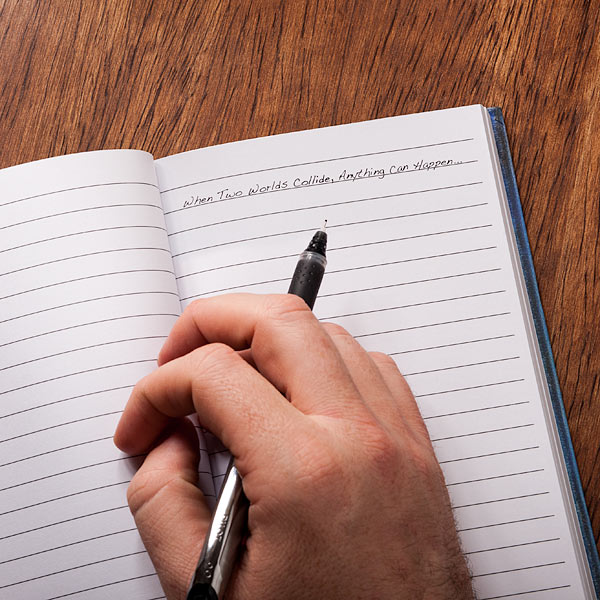 When Two Worlds Collide, Anything Can Happen...